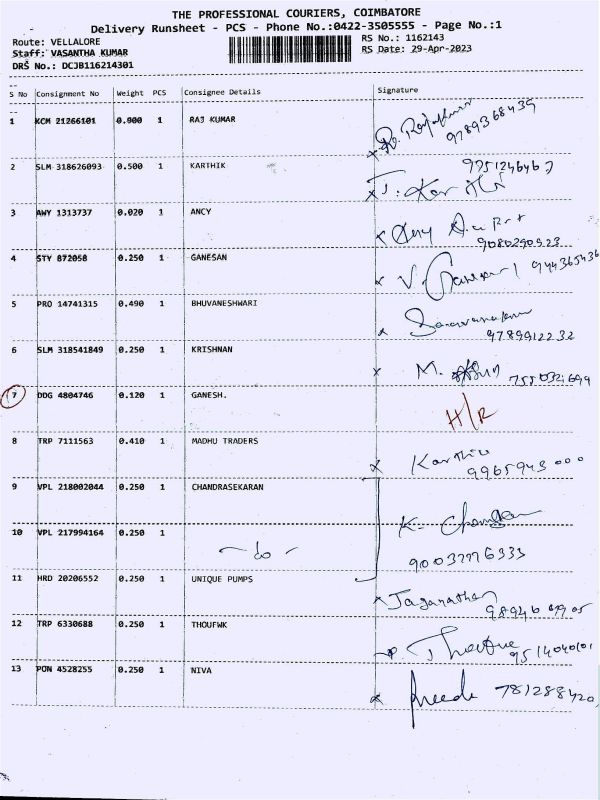 THE PROFESSIONAL COURIERS, COIMBATORE
Delivery Runsheet - PCS - Phone No.:0422-3505555 - Page No.:1
Route: VELLALORE
RS No.: 1162143
Staff: VASANTHA KUMAR
RS Date: 29-Apr-2023
DRS No.: DCJB116214301
S No Consignment No Weight PCS Consignee Details Signature
1 KCM 21266101 0.900 1 RAJ KUMAR
9789368439
2 SLM 318626093 0.500 1 KARTHIK
3 AWY 1313737 0.020 1 ANCY
9080290923
4 STY 872058 0.250 1 GANESAN
944365436
5 PRO 14741315 0.490 1 BHUVANESHWARI
9789912232
6 SLM 318541849 0.250 1 KRISHNAN
M.
7 DDG 4804746 0.120 1 GANESH. H/R
8 TRP 7111563 0.410 1 MADHU TRADERS
9965943000
9 VPL 218002044 0.250 1 CHANDRASEKARAN
10 VPL 217994164 0.250 1 - do -
11 HRD 20206552 0.250 1 UNIQUE PUMPS Jaganathan
12 TRP 6330688 0.250 1 THOUFWK
9514040101
13 PON 4528255 0.250 1 NIVA
781288420